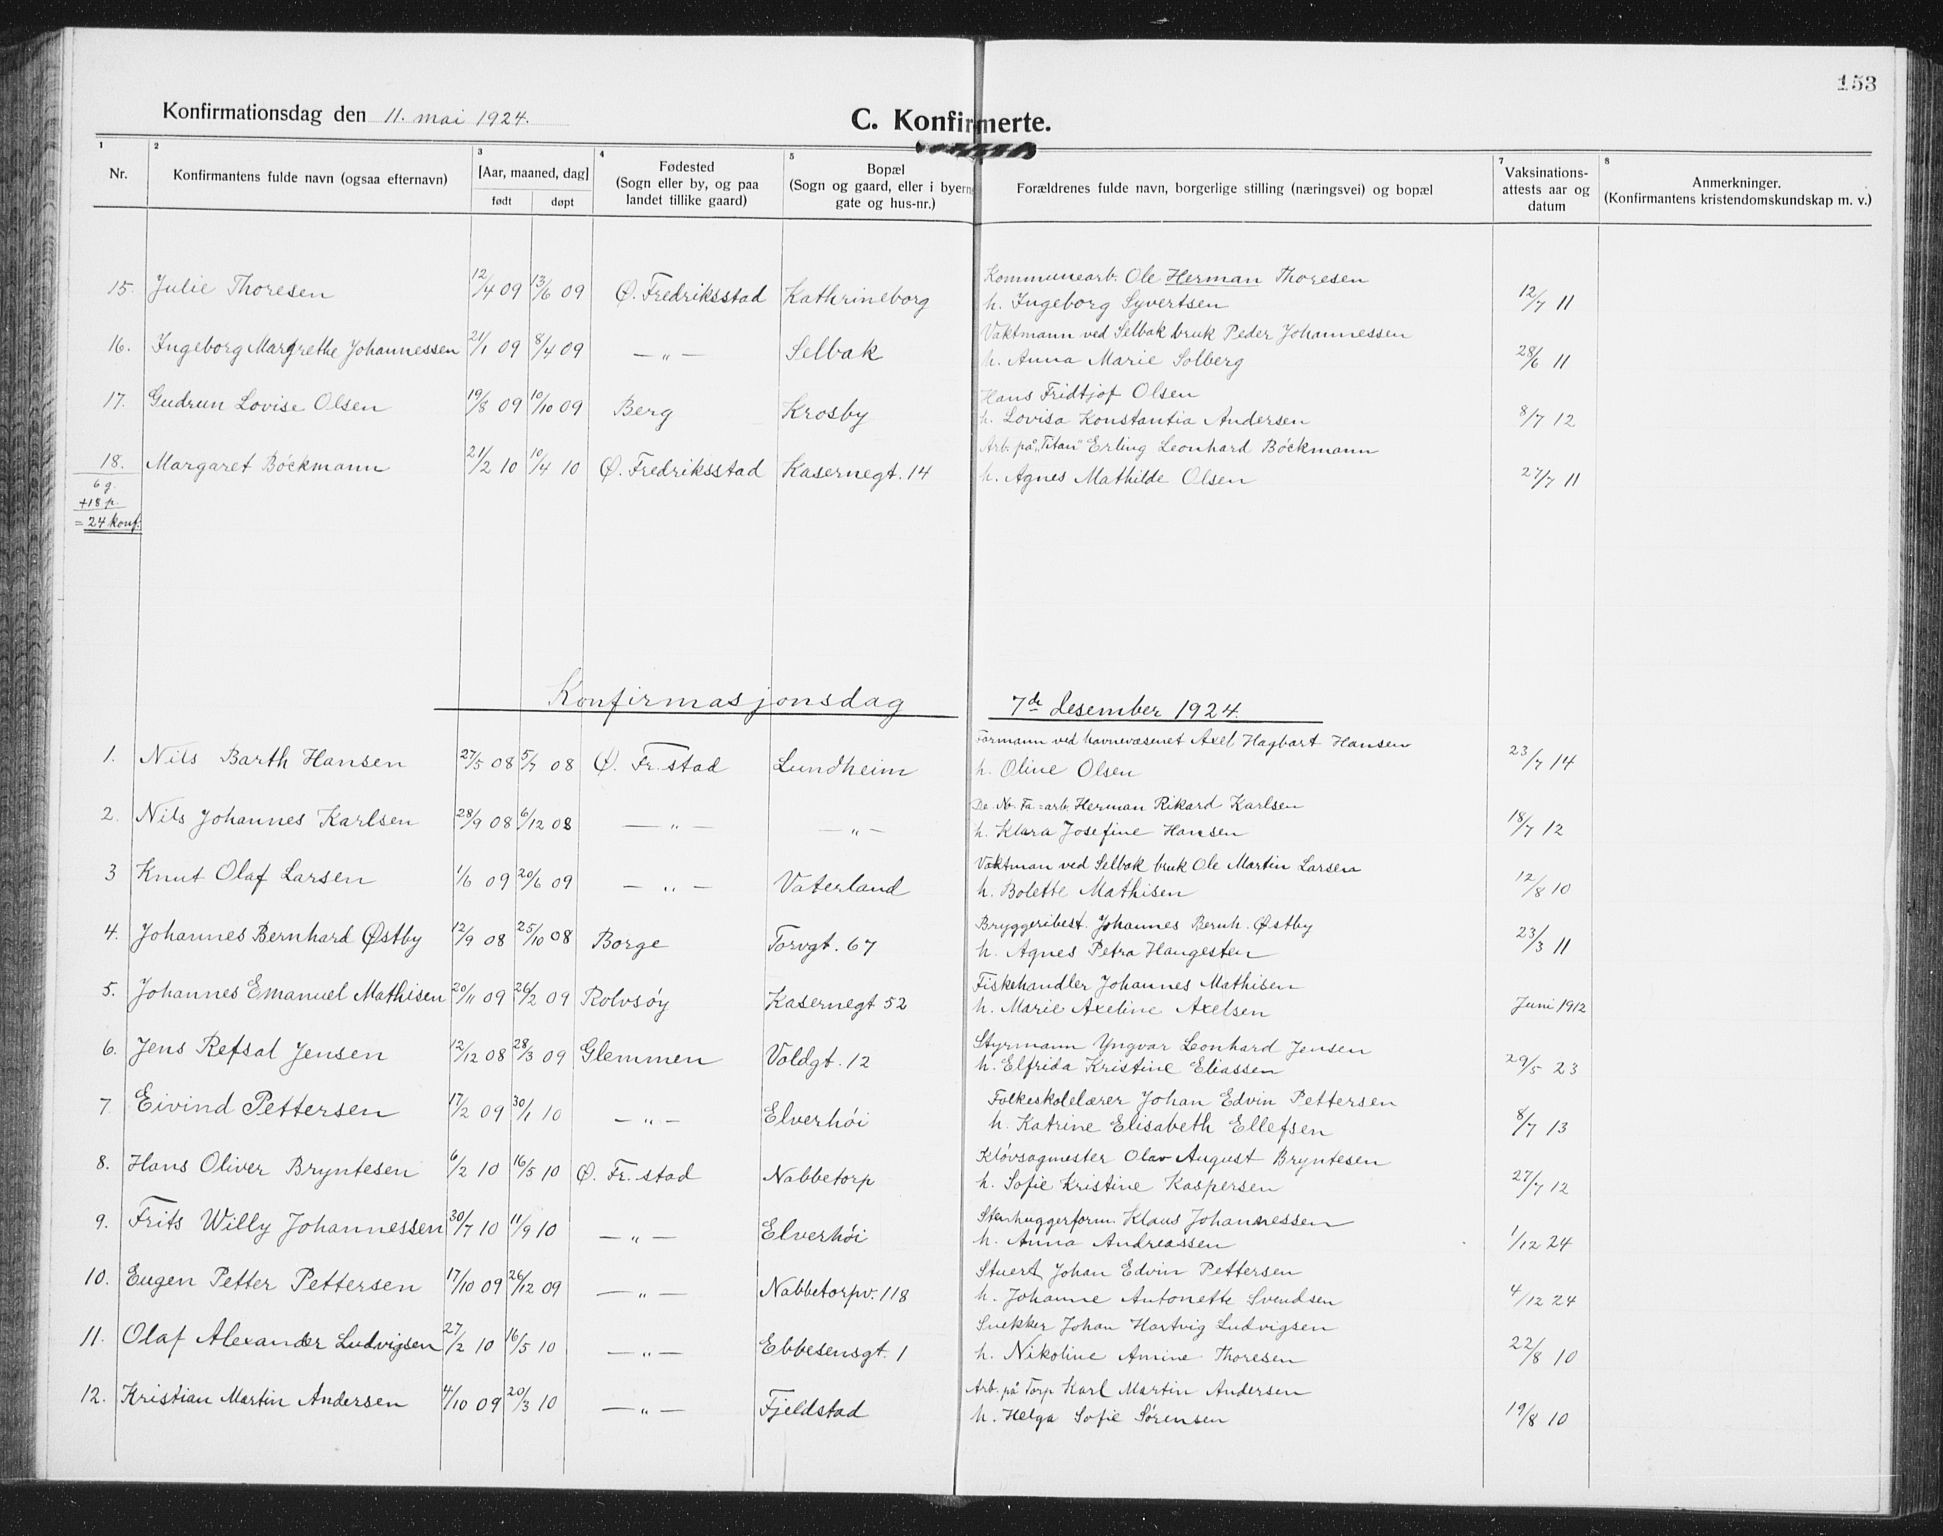 153
Konfirmationsdag den 11. mai 1924.
C. Konfirmerte.
1 2 3 4 5 7 8
Nr.
Konfirmantens fulde navn (ogsaa efternavn)
[Aar, maaned, dag]
født døpt
Fødested
(Sogn eller by, og paa
landet tillike gaard)
Bopæl
(Sogn og gaard, eller i byerne
gate og hus-nr.)
Forældrenes fulde navn, borgerlige stilling (næringsvei) og bopæl
Vaksinations-
attests aar og
datum
Anmerkninger.
(Konfirmantens kristendomskundskap m. v.)
15. Julie Thoresen 12/4 09 13/6 09 Ø. Fredriksstad Kathrineborg Kommunearb. Ole Herman Thoresen
h. Ingeborg Syvertsen 12/7 11
16. Ingeborg Margrethe Johannessen 21/1 09 8/4 09 — „ — Selbak Vaktmann ved Selbak bruk Peder Johannessen
h. Anna Marie Solberg 28/6 11
17. Gudrun Lovise Olsen 19/8 09 10/10 09 Berg Krosby Hans Fridtjof Olsen
h. Lovisa Konstantia Andersen 8/7 12
18. Margaret Böckmann 21/2 10 10/4 10 Ø. Fredriksstad Kasernegt. 14 Arb. på „Titan" Erling Leonhard Böckmann
h. Agnes Mathilde Olsen 27/7 11
6 g.
+18 p.
= 24 konf.
Konfirmasjonsdag 7de desember 1924.
1. Nils Barth Hansen 27/5 08 5/7 08 Ø. Fr.stad Lundheim Formann ved havnevæsenet Axel Hagbart Hansen
h. Oline Olsen 23/7 14
2. Nils Johannes Karlsen 28/9 08 6/12 08 — „ — — „ — De. No. Fa.=arb. Herman Rikard Karlsen
h. Klara Josefine Hansen 18/7 12
3 Knut Olaf Larsen 1/6 09 20/6 09 — „ — Vaterland Vaktman ved Selbak bruk Ole Martin Larsen
h. Bolette Mathisen 12/8 10
4. Johannes Bernhard Østby 12/9 08 25/10 08 Borge Torvgt. 67 Bryggeribest. Johannes Bernh. Østby
h. Agnes Petra Haugesten 23/3 11
5. Johannes Emanuel Mathisen 20/11 09 26/2 09 Rolvsöy Kasernegt 52 Fiskehandler Johannes Mathisen
h. Marie Axeline Axelsen Juni 1912
6. Jens Refsal Jensen 12/12 08 28/3 09 Glemmen Voldgt. 12 Styrmann Yngvar Leonhard Jensen
h. Elfrida Kristine Eliassen 29/5 23
7 Eivind Pettersen 17/2 09 30/1 10 — „ — Elverhöi Folkeskolelærer Johan Edvin Pettersen
h. Katrine Elisabeth Ellefsen 8/7 13
8. Hans Oliver Bryntesen 6/2 10 16/5 10 Ø. Fr. stad Nabbetorp Kløvsagmester Olav August Bryntesen
h. Sofie Kristine Kaspersen 27/7 12
9. Frits Willy Johannessen 30/7 10 11/9 10 — „ — Elverhöi Stenhuggerform. Klaus Johannessen
h. Anna Andreassen 1/12 24
10. Eugen Petter Pettersen 17/10 09 26/12 09 — „ — Nabbetorpv. 118 Stuert Johan Edvin Pettersen
h. Johanne Antonette Svendsen 4/12 24
11. Olaf Alexander Ludvigsen 27/2 10 16/5 10 — „ — Ebbesensgt. 1 Snekker Johan Hartvig Ludvigsen
h. Nikoline Amine Thoresen 22/8 10
12. Kristian Martin Andersen 4/10 09 20/3 10 — „ — Fjeldstad Arb. på Torp Karl Martin Andersen
h. Helga Sofie Sörensen 19/8 10